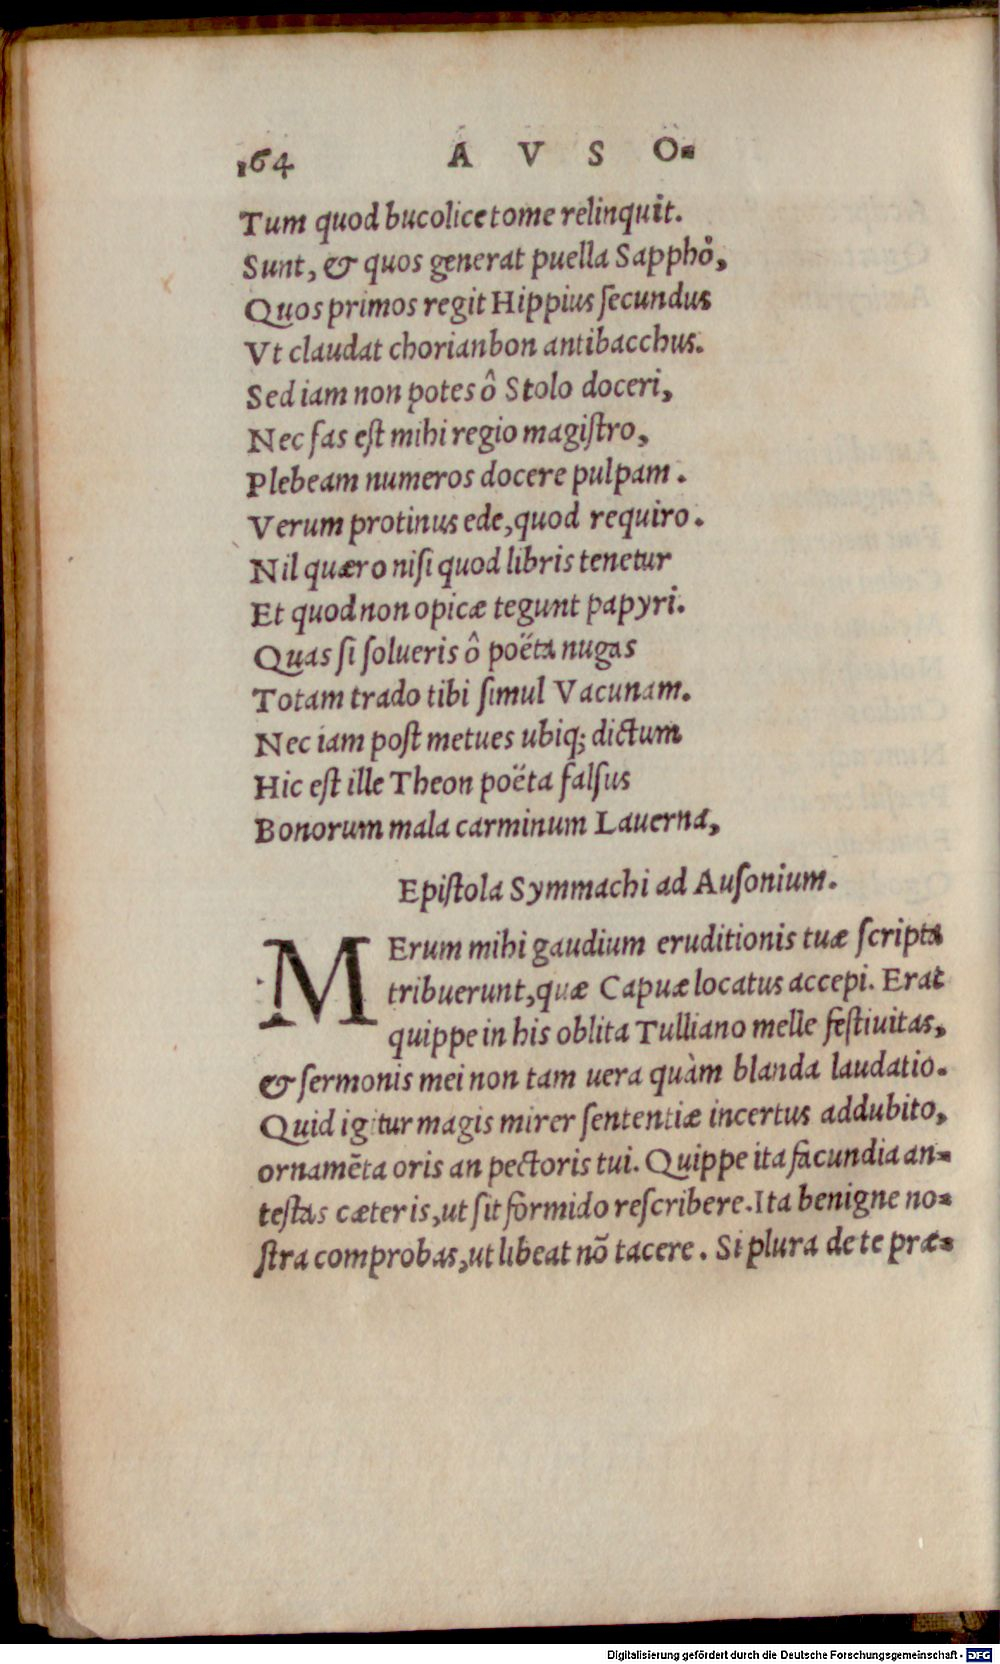 164 A V S O-
Tum quod bucolice tome relinquit.
Sunt, & quos generat puella Sapphô,
Quos primos regit Hippius ſecundus
Vt claudat chorianbon antibacchus.
Sed iam non potes ô Stolo doceri,
Nec fas eſt mihi regio magiſtro,
Plebeam numeros docere pulpam.
Verum protinus ede, quod requiro.
Nil quæro niſi quod libris tenetur
Et quod non opicæ tegunt papyri.
Quas ſi ſolueris ô poëta nugas
Totam trado tibi ſimul Vacunam.
Nec iam poſt metues ubiq; dictum
Hic eſt ille Theon poëta falſus
Bonorum mala carminum Lauerna,
Epiſtola Symmachi ad Auſonium.
MErum mihi gaudium eruditionis tuæ ſcripta
tribuerunt, quæ Capuæ locatus accepi. Erat
quippe in his oblita Tulliano melle feſtiuitas,
& ſermonis mei non tam uera quàm blanda laudatio.
Quid igitur magis mirer ſententiæ incertus addubito,
ornamẽta oris an pectoris tui. Quippe ita facundia an-
teſtas cæteris, ut ſit formido reſcribere. Ita benigne no-
ſtra comprobas, ut libeat nõ tacere. Si plura de te præ-
Digitalisierung gefördert durch die Deutsche Forschungsgemeinschaft - DFG